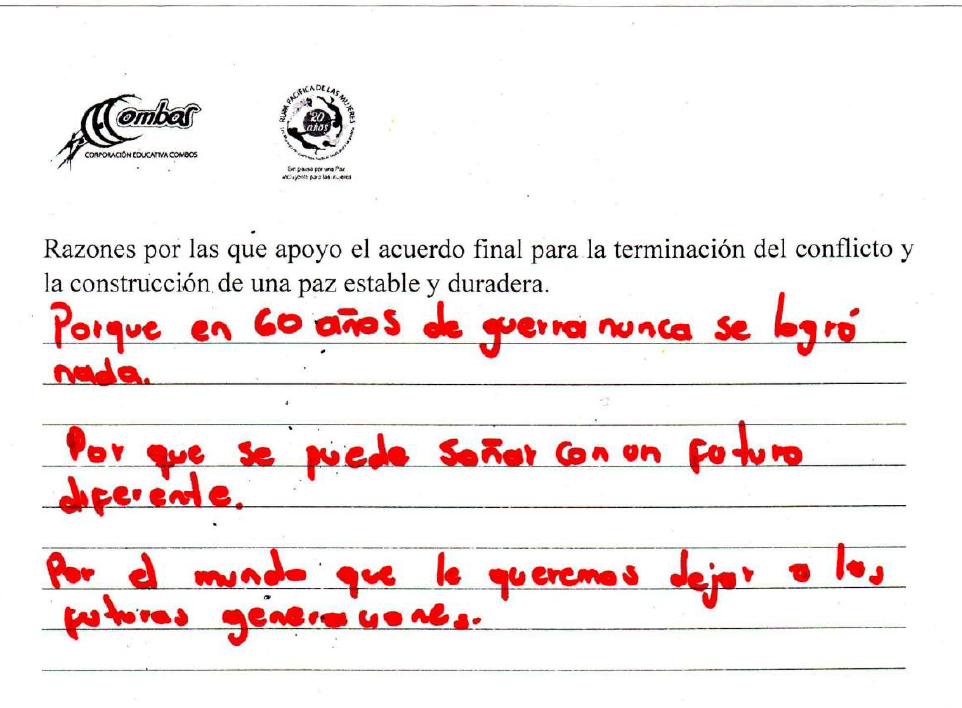 Combos
CORPORACIÓN EDUCATIVA COMBOS
RUTA PACIFICA DE LAS MUJERES
20
años
Sin pausa por una Paz
incluyente para las mujeres
Razones por las que apoyo el acuerdo final para la terminación del conflicto y
la construcción de una paz estable y duradera.
Porque en 60 años de guerra nunca se logró
nada.
Por que se puede soñar con un futuro
diferente.
Por el mundo que le queremos dejar a las
futuras generaciones.